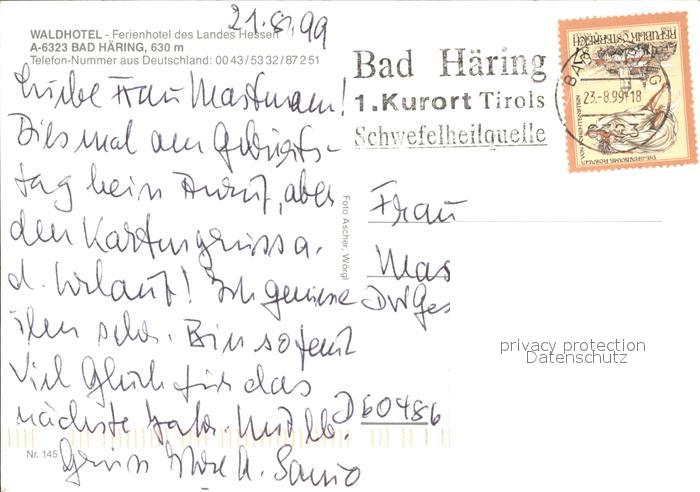 21.8.99
WALDHOTEL - Ferienhotel des Landes Hessen
A-6323 BAD HÄRING, 630 m
Telefon-Nummer aus Deutschland: 00 43 / 53 32 / 87 2 51
Bad Häring
1. Kurort Tirols
Schwefelheilquelle
23.-8.99-18
REPUBLIK ÖSTERREICH
Liebe Frau
Diesmal am Geburts-
tag kein Anruf, aber
den Kartengruss a.
d. Urlaub! Ich geniesse
ihn sehr. Bin
Viel Glück für das
nächste Jahr. Mit lb.
Gruss Ihre
Foto Ascher, Wörgl
Frau
Mas
D60486
privacy protection
Datenschutz
Nr. 145